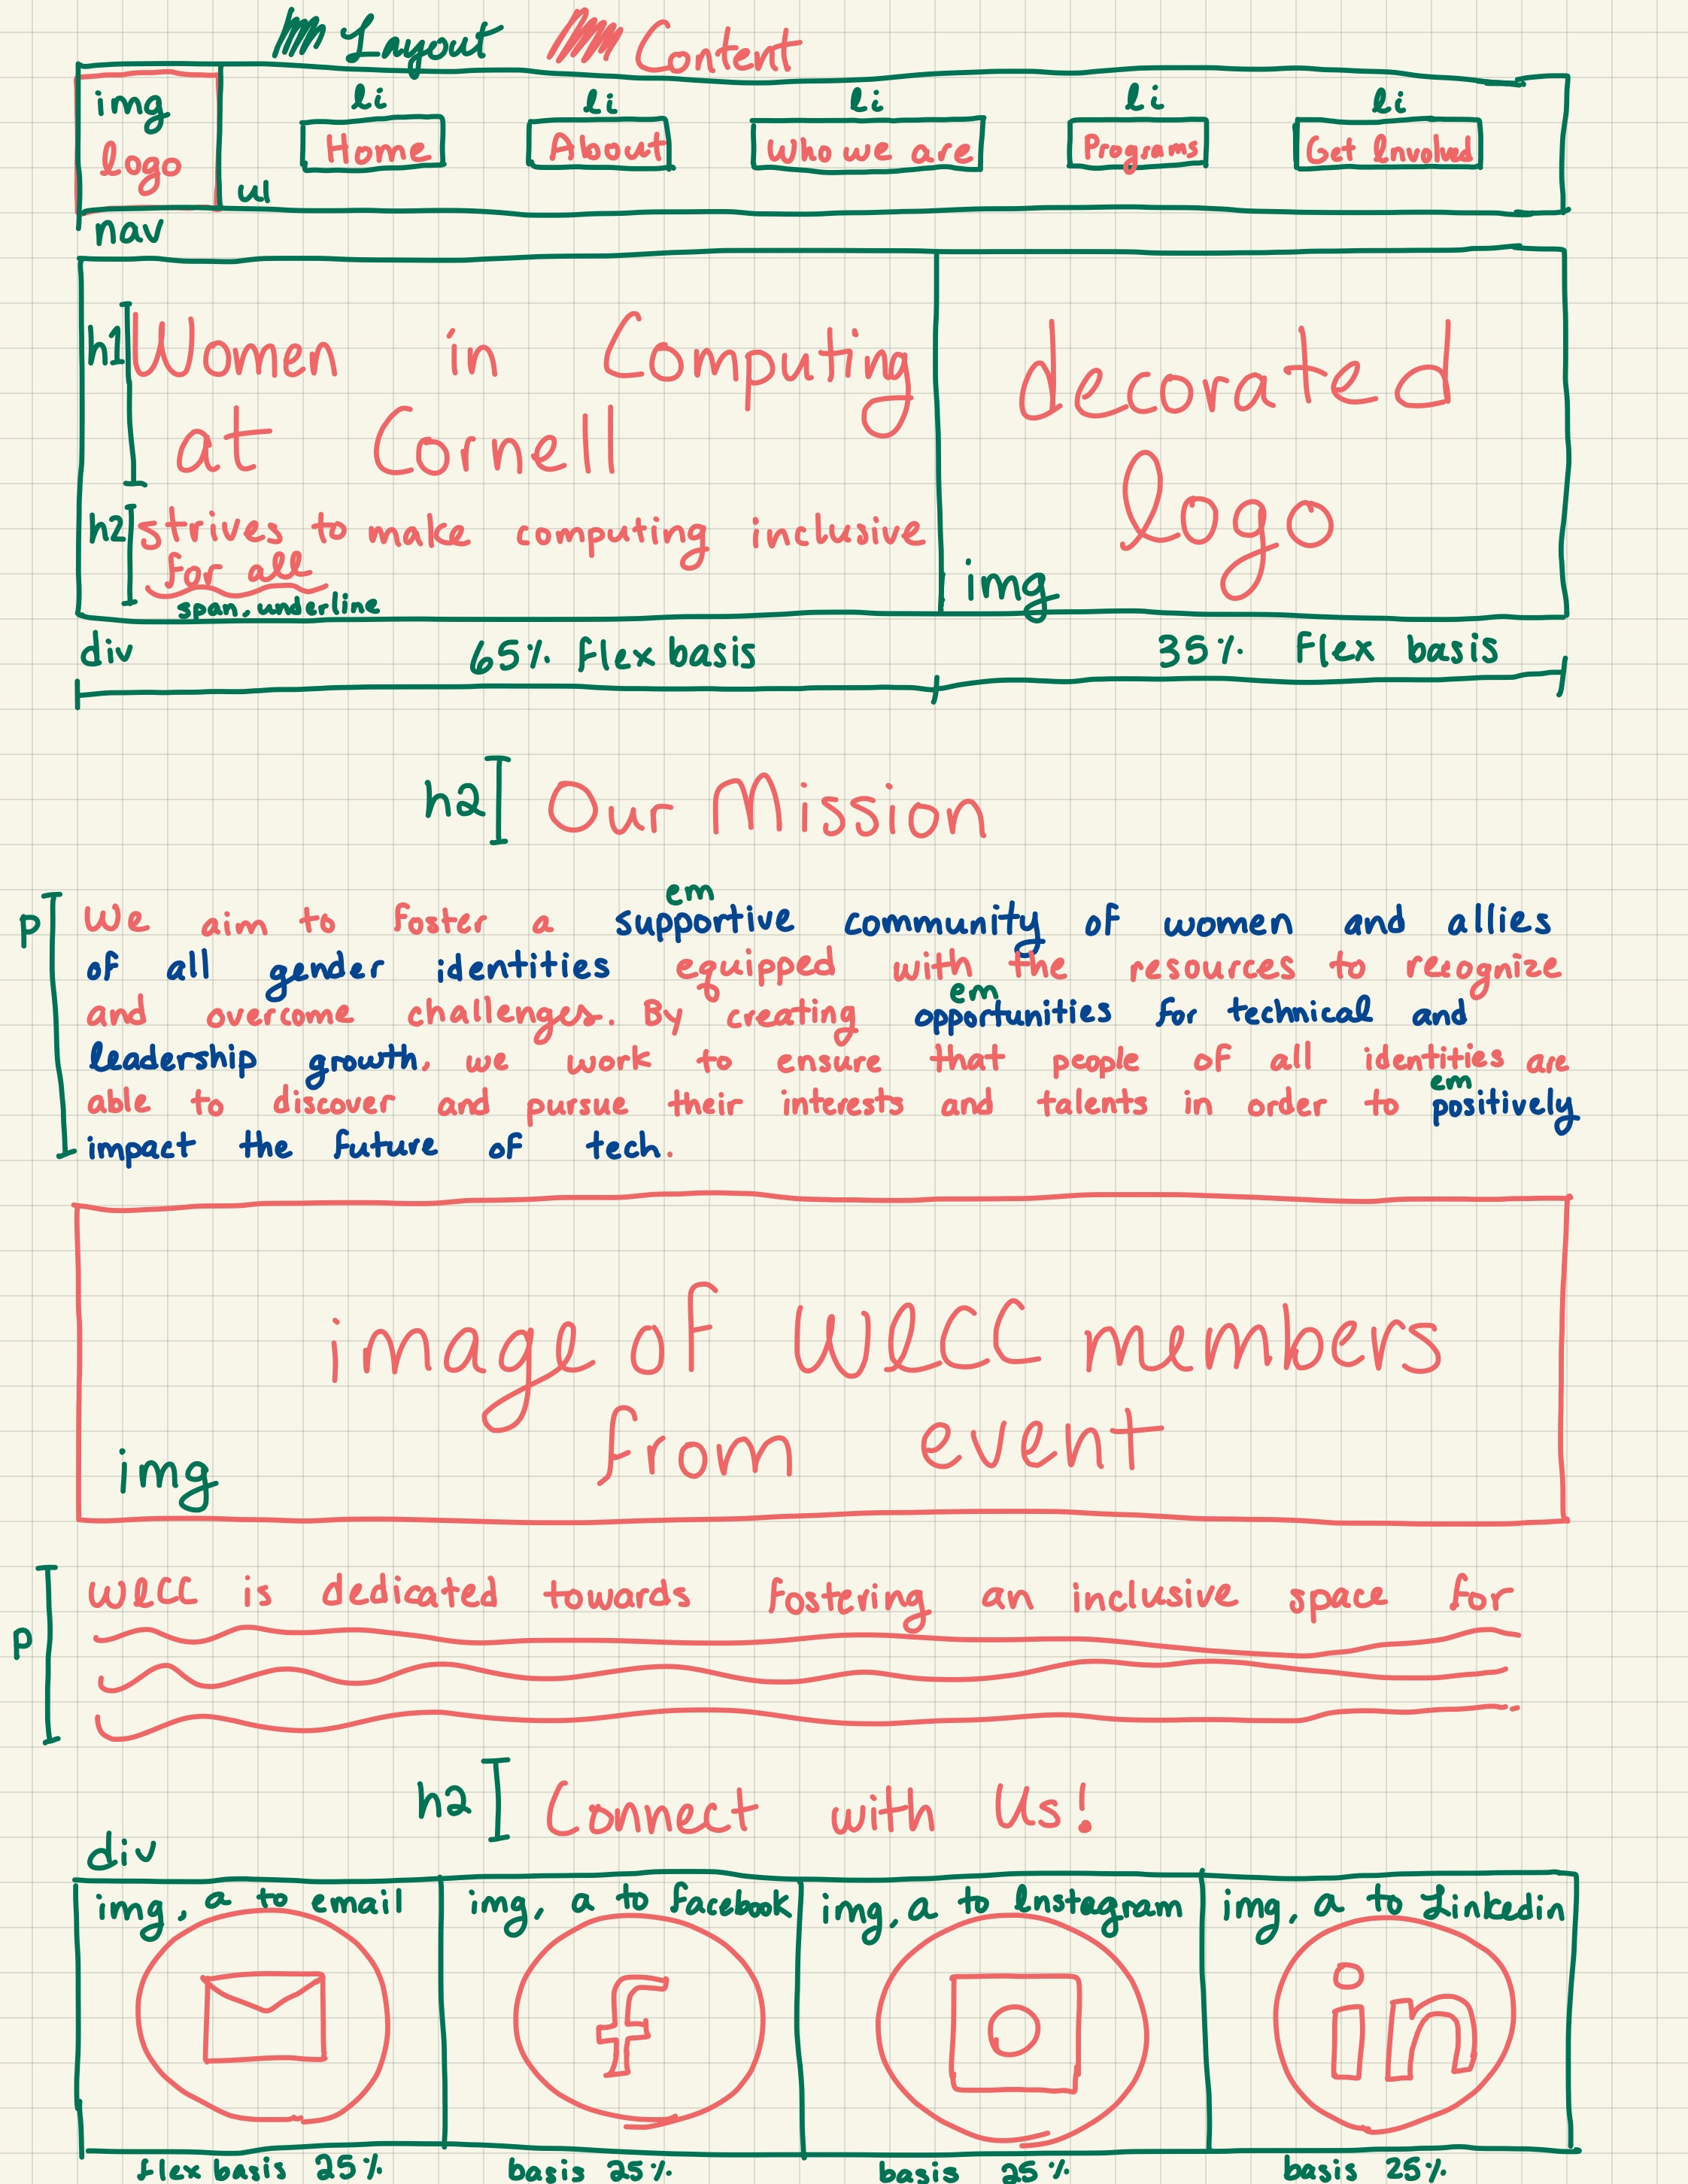 Layout Content
img li li li li li
logo Home About Who we are Programs Get Involved
ul
nav
h1 Women in Computing
at Cornell
decorated
logo
h2 strives to make computing inclusive
for all
span, underline
img
div 65% flex basis 35% flex basis
h2 Our Mission
em
p We aim to foster a supportive community of women and allies
of all gender identities equipped with the resources to recognize
em
and overcome challenges. By creating opportunities for technical and
leadership growth, we work to ensure that people of all identities are
em
able to discover and pursue their interests and talents in order to positively
impact the future of tech.
image of WICC members
from event
img
WICC is dedicated towards fostering an inclusive space for
p
h2 Connect with Us!
div
img, a to email img, a to facebook img, a to Instagram img, a to Linkedin
f in
flex basis 25% basis 25% basis 25% basis 25%